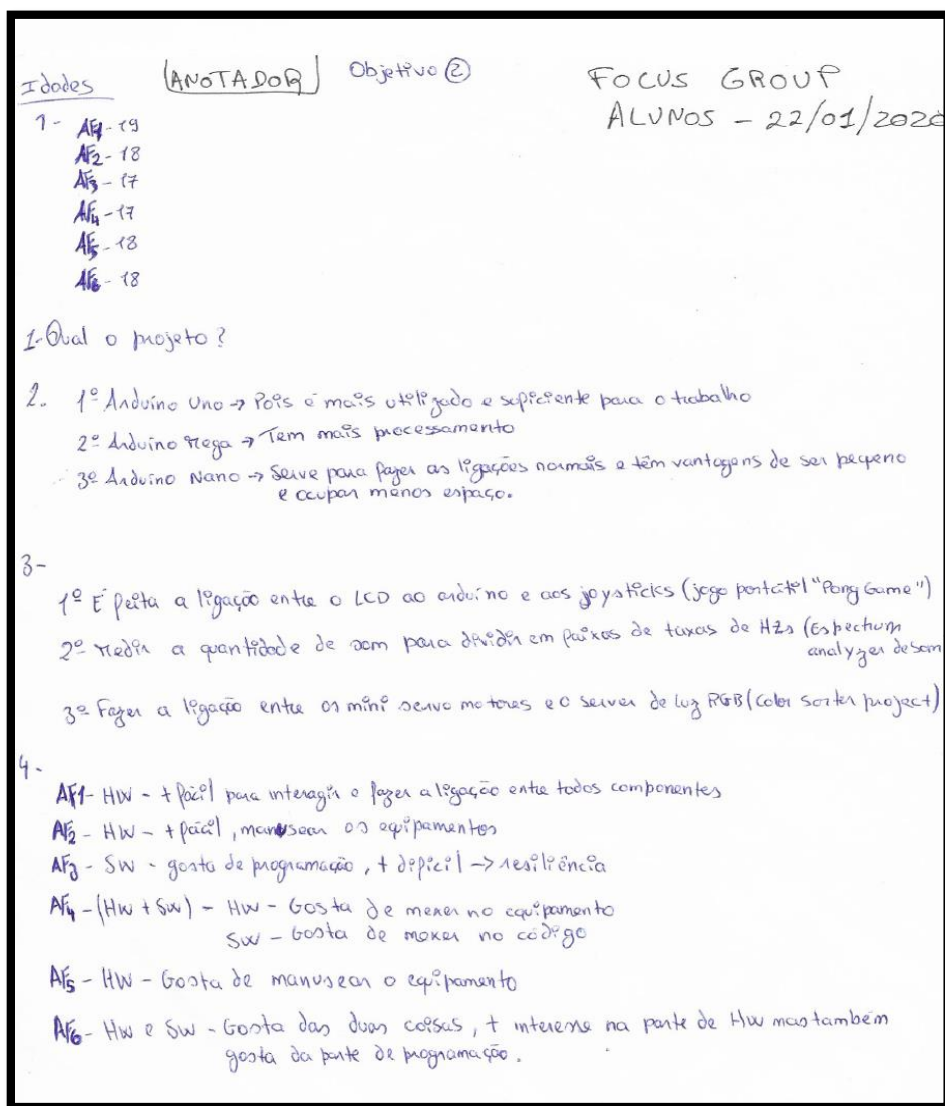 Idades (ANOTADOR) Objetivo ② FOCUS GROUP
ALUNOS - 22/01/2020
1- AF1-19
AF2-18
AF3-17
AF4-17
AF5-18
AF6-18
1-Qual o projeto?
2. 1º Arduino Uno → Pois é mais utilizado e suficiente para o trabalho
2º Arduino Mega → Tem mais processamento
3º Arduino Nano → Serve para fazer as ligações normais e têm vantagens de ser pequeno
e ocupar menos espaço.
3-
1º É feita a ligação entre o LCD ao arduino e aos joysticks (jogo portátil "Pong Game")
2º Medir a quantidade de som para dividir em faixas de taxas de HZs (Espectrum
analyzer de som
3º Fazer a ligação entre os mini servo motores e o server de luz RGB (Color sorter project)
4-
AF1- HW - + fácil para interagir e fazer a ligação entre todos componentes
AF2 - HW - + fácil, manusear os equipamentos
AF3 - SW - gosta de programação, + dificil -> resiliência
AF4 - (HW + SW) - HW - Gosta de mexer no equipamento
SW - Gosta de mexer no código
AF5 - HW - Gosta de manusear o equipamento
AF6 - HW e SW - Gosta das duas coisas, + interesse na parte de HW mas também
gosta da parte de programação.